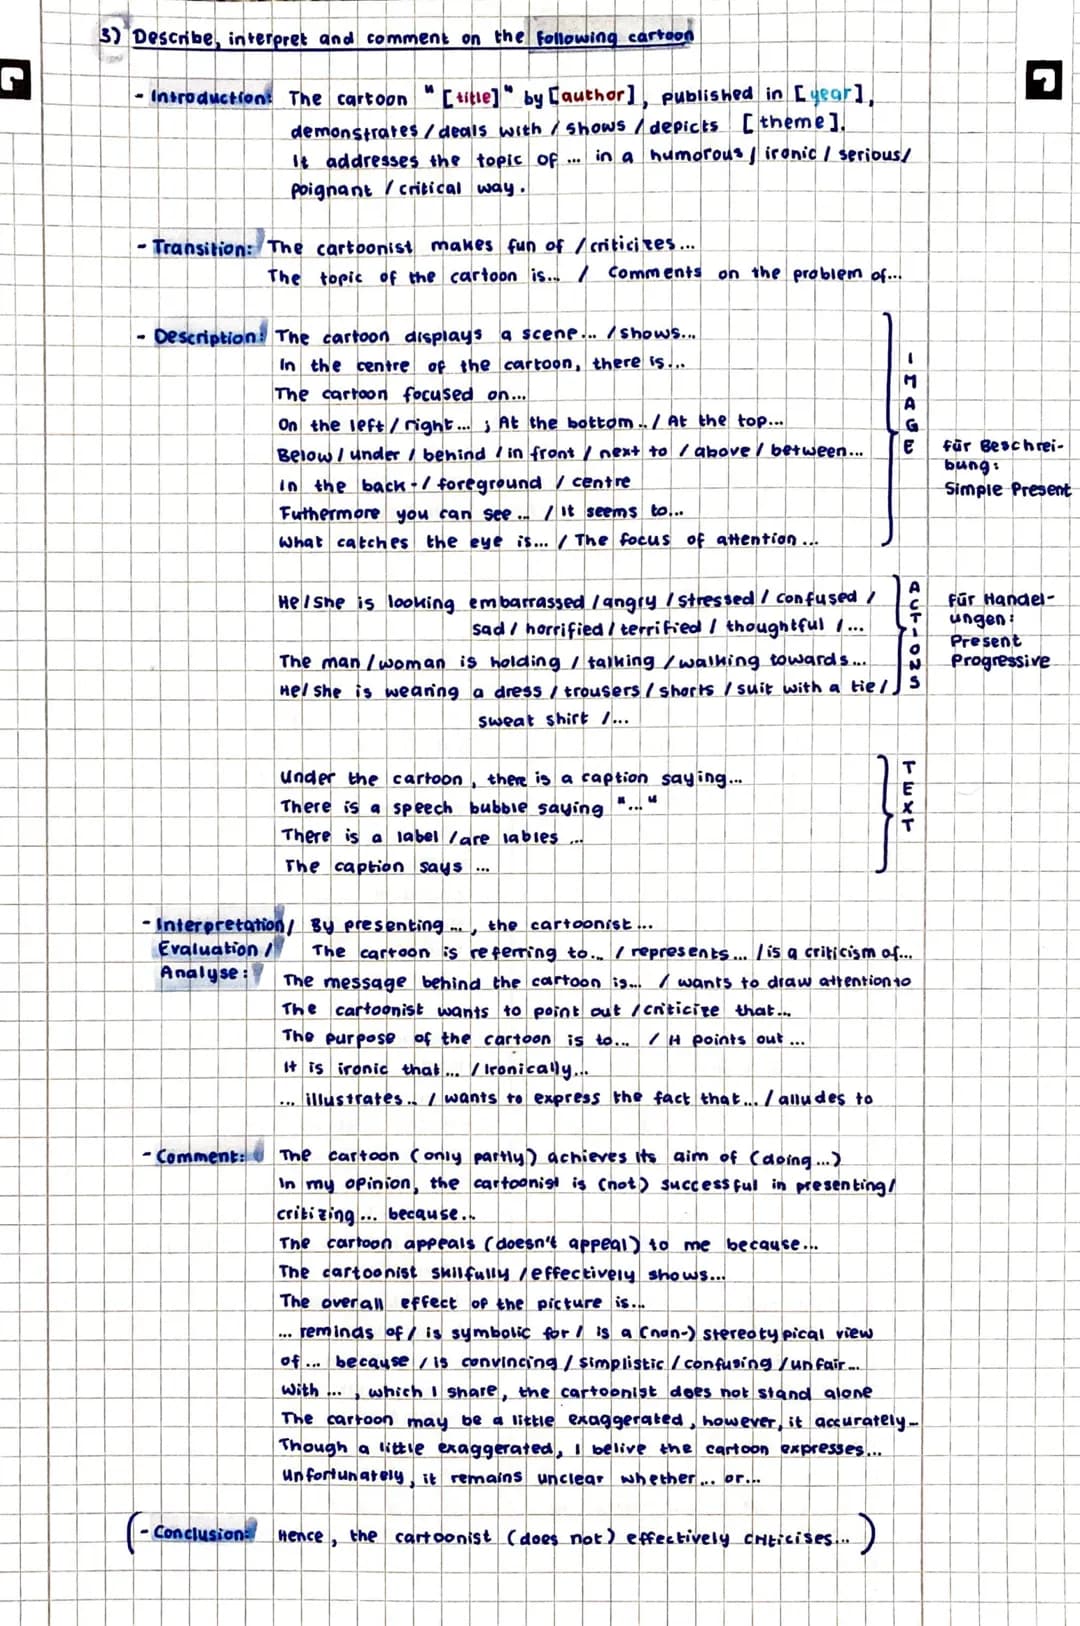 3) Describe, interpret and comment on the following cartoon
- Introduction: The cartoon "[title]" by [author], published in [year],
demonstrates / deals with / shows / depicts [theme].
It addresses the topic of ... in a humorous / ironic / serious/
poignant / critical way.
- Transition: The cartoonist makes fun of / criticizes...
The topic of the cartoon is... / Comments on the problem of...
- Description: The cartoon displays a scene... / shows...
In the centre of the cartoon, there is...
The cartoon focused on...
On the left / right... ; At the bottom .. / At the top...
Below / under / behind / in front / next to / above / between...
In the back - / foreground / centre
Futhermore you can see ... / It seems to...
What catches the eye is... / The focus of attention ...
IMAGE
für Beschrei-
bung:
Simple Present
He / She is looking embarrassed / angry / stressed / confused /
sad / horrified / terrified / thoughtful / ...
The man / woman is holding / talking / walking towards...
He/ she is wearing a dress / trousers / shorts / suit with a tie /
sweat shirt /...
ACTIONS
für Handel-
ungen:
Present
Progressive
Under the cartoon, there is a caption saying...
There is a speech bubble saying "..."
There is a label / are lables ...
The caption says ...
TEXT
- Interpretation / By presenting ... , the cartoonist ...
Evaluation / The cartoon is referring to... / represents... / is a criticism of...
Analyse: The message behind the cartoon is... / wants to draw attention to
The cartoonist wants to point out / criticize that...
The purpose of the cartoon is to... / It points out ...
It is ironic that ... / Ironically...
... illustrates .. / wants to express the fact that... / alludes to
- Comment: The cartoon (only partly) achieves its aim of (doing ...)
In my opinion, the cartoonist is (not) successful in presenting/
critizing ... because...
The cartoon appeals (doesn't appeal) to me because...
The cartoonist skilfully / effectively shows...
The overall effect of the picture is...
... reminds of / is symbolic for / is a (non-) stereotypical view
of ... because / is convincing / simplistic / confusing / unfair...
With ... , which I share, the cartoonist does not stand alone
The cartoon may be a little exaggerated, however, it accurately...
Though a little exaggerated, I belive the cartoon expresses...
Unfortunately, it remains unclear whether... or...
(- Conclusion: Hence, the cartoonist (does not) effectively criticises... )